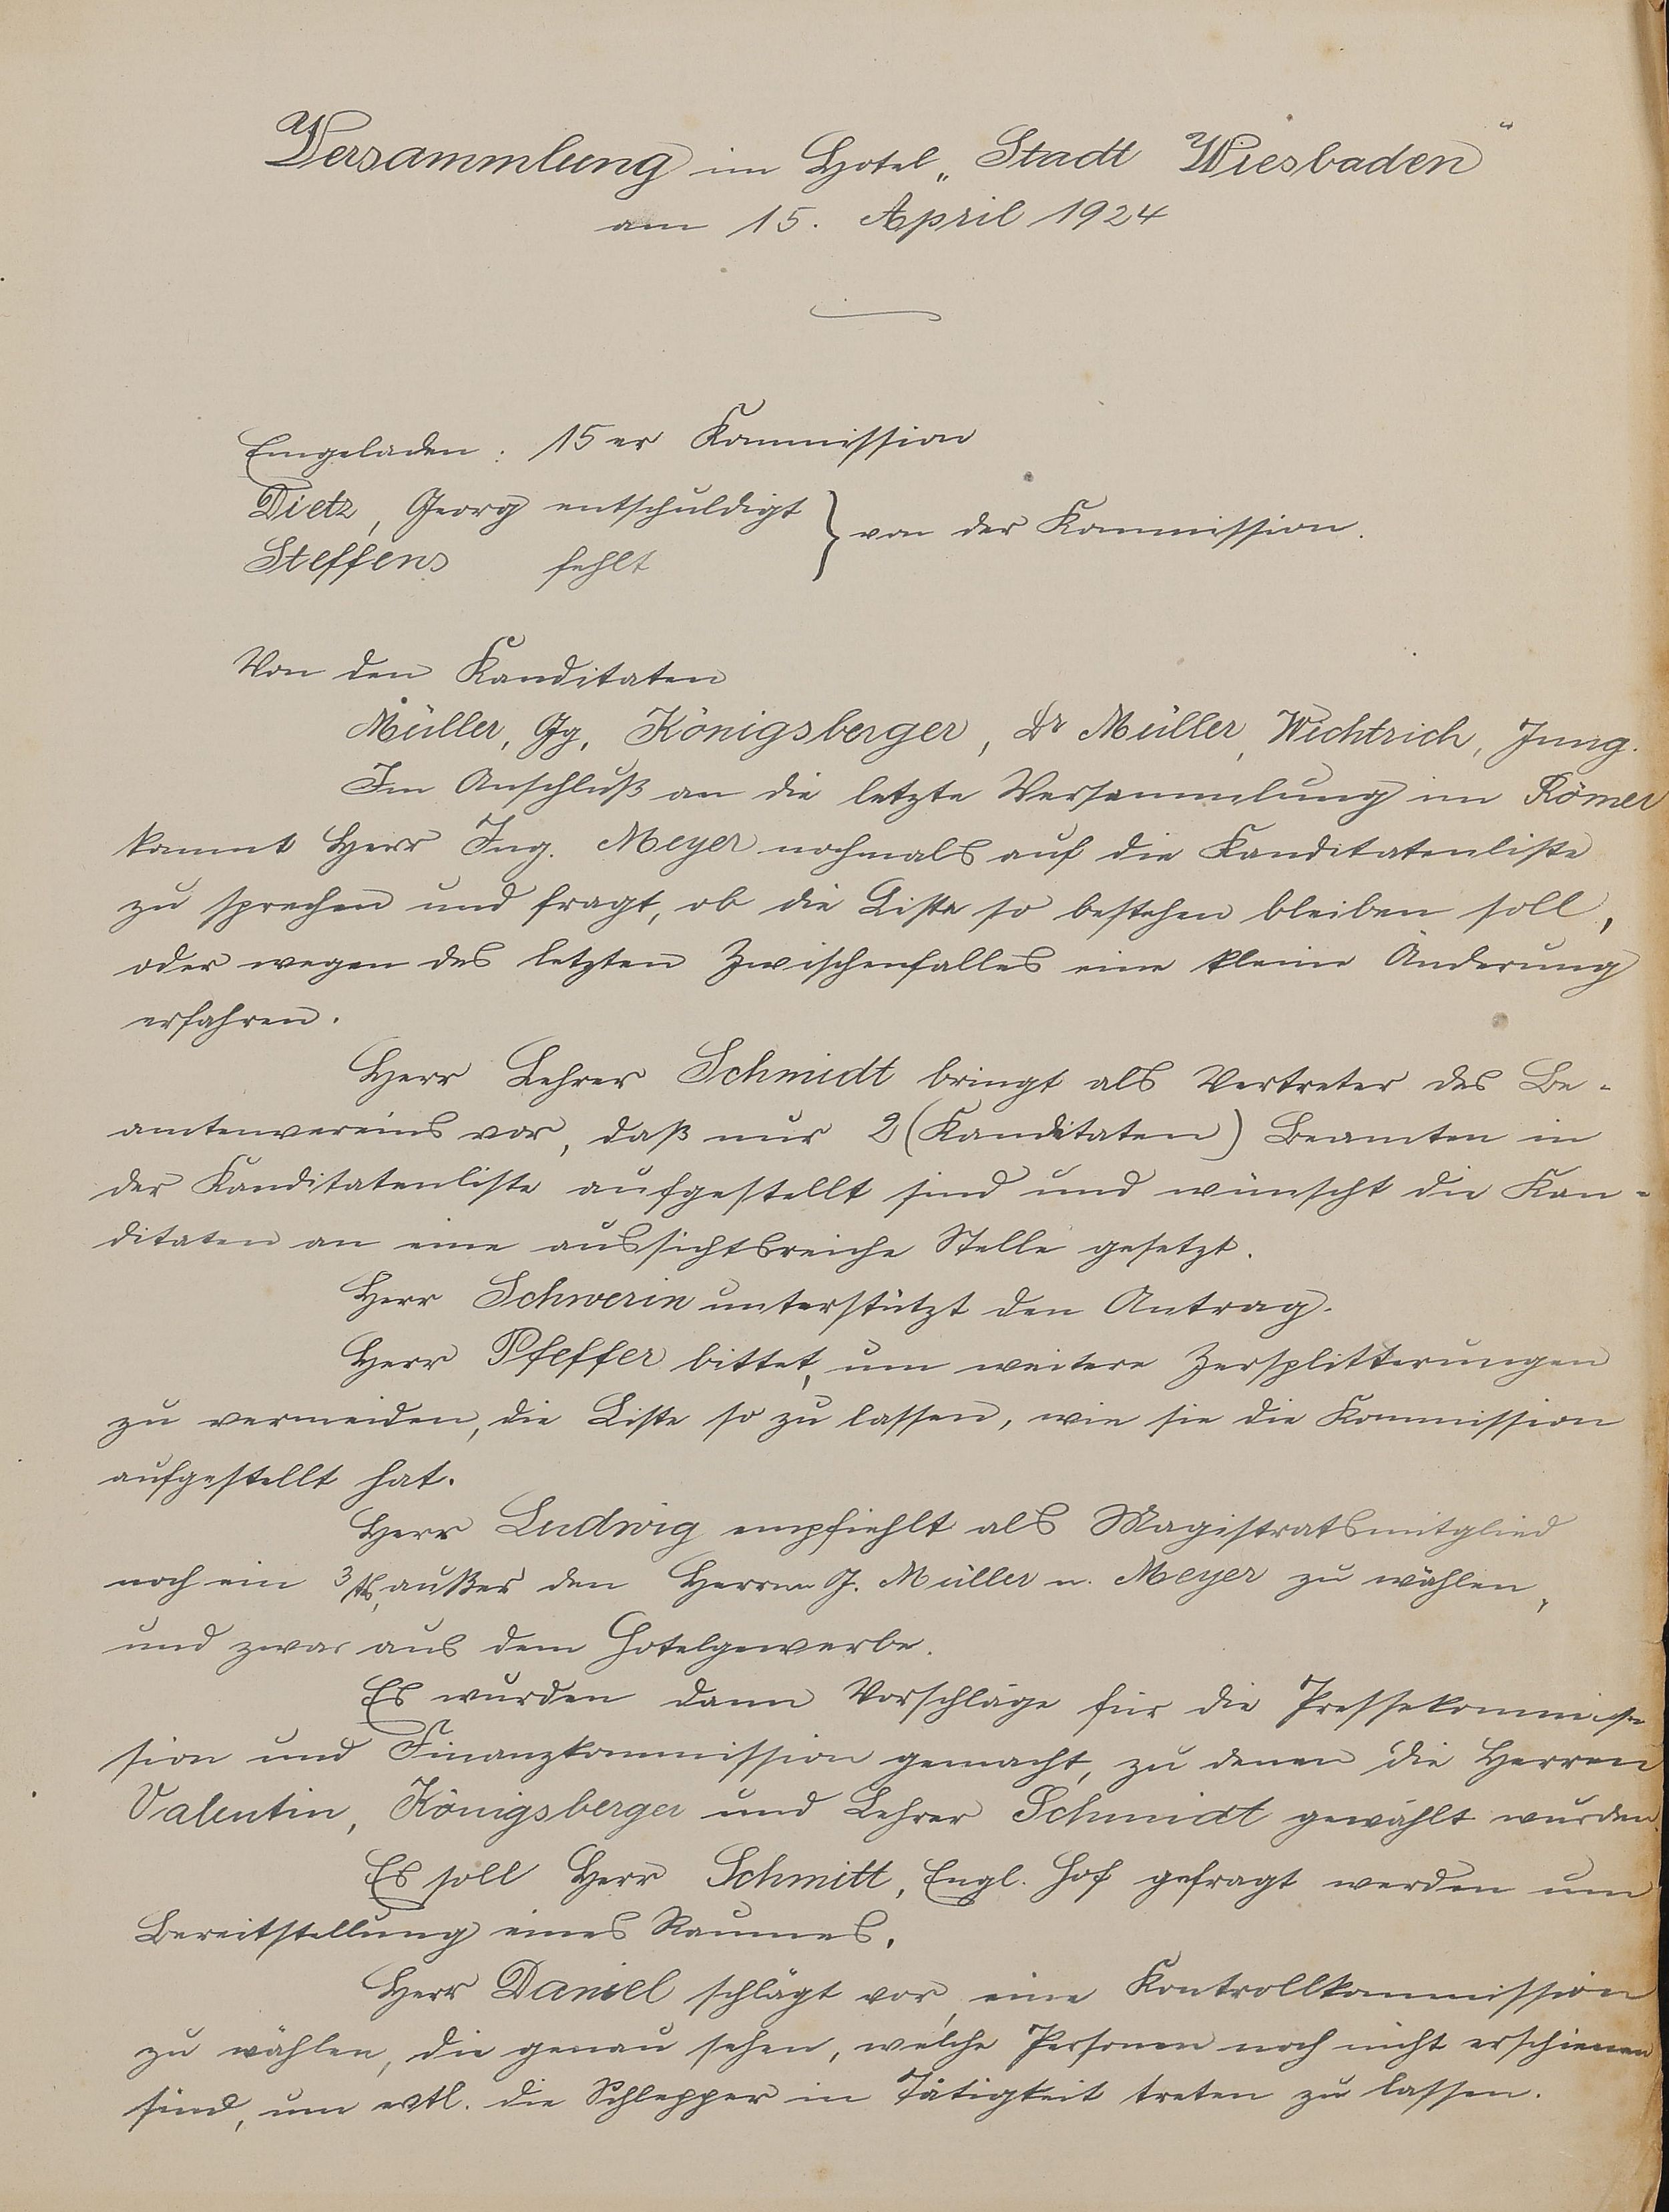 Versammlung im Hotel „Stadt Wiesbaden“
am 15. April 1924
Eingeladen: 15er Kommission
Dietz, Georg entschuldigt } von der Kommission.
Steffens fehlt
Von den Kanditaten
Müller, Gg, Königsberger, Dr Müller, Wichtrich, Jung.
Im Anschluß an die letzte Versammlung im Römer
kommt Herr Ing. Meyer nochmals auf die Kanditatenliste
zu sprechen und fragt, ob die Liste so bestehen bleiben soll,
oder wegen des letzten Zwischenfalles eine kleine Änderung
erfahren.
Herr Lehrer Schmidt bringt als Vertreter des Be-
amtenvereins vor, daß nur 2 (Kanditaten) Beamten in
der Kanditatenliste aufgestellt sind und wünscht die Kan-
ditaten an eine aussichtsreiche Stelle gesetzt.
Herr Schwerin unterstützt den Antrag.
Herr Pfeffer bittet, um weitere Zersplitterungen
zu vermeiden, die Liste so zu lassen, wie sie die Kommission
aufgestellt hat.
Herr Ludwig empfiehlt als Magistratsmitglied
noch ein 3tes, außer den Herren G. Müller u. Meyer zu wählen,
und zwar aus dem Hotelgewerbe.
Es wurden dann Vorschläge für die Pressekommis-
sion und Finanzkommission gemacht, zu denen die Herren
Valentin, Königsberger und Lehrer Schmidt gewählt wurden.
Es soll Herr Schmitt, Engl. Hof gefragt werden um
Bereitstellung eines Raumes.
Herr Daniel schlägt vor, eine Kontrollkommission
zu wählen, die genau sehen, welche Personen noch nicht erschienen
sind, um evtl. die Schlepper in Tätigkeit treten zu lassen.